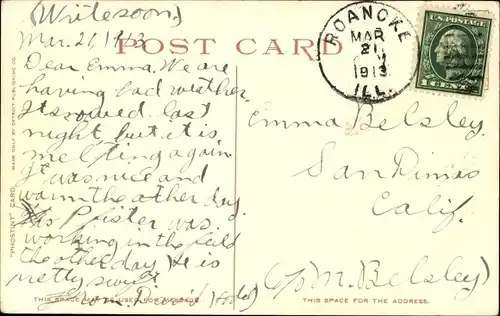 (Write soon.)
Mar. 21, 1913
POST CARD
Dear Emma. We are
having bad weather.
It snowed last
night but it is
melting again
It was nice and
warm the other day.
Pfister was
working in the field
the other day) He is
pretty
from David
ROANOKE
MAR
21
1913
ILL.
U.S. POSTAGE
1 CENT 1
Emma Belsley
San Dimas
Calif.
(c/o M. Belsley)
"PHOSTINT" CARD
MADE ONLY BY DETROIT PUBLISHING CO.
THIS SPACE MAY BE USED FOR MESSAGE.
THIS SPACE FOR THE ADDRESS.